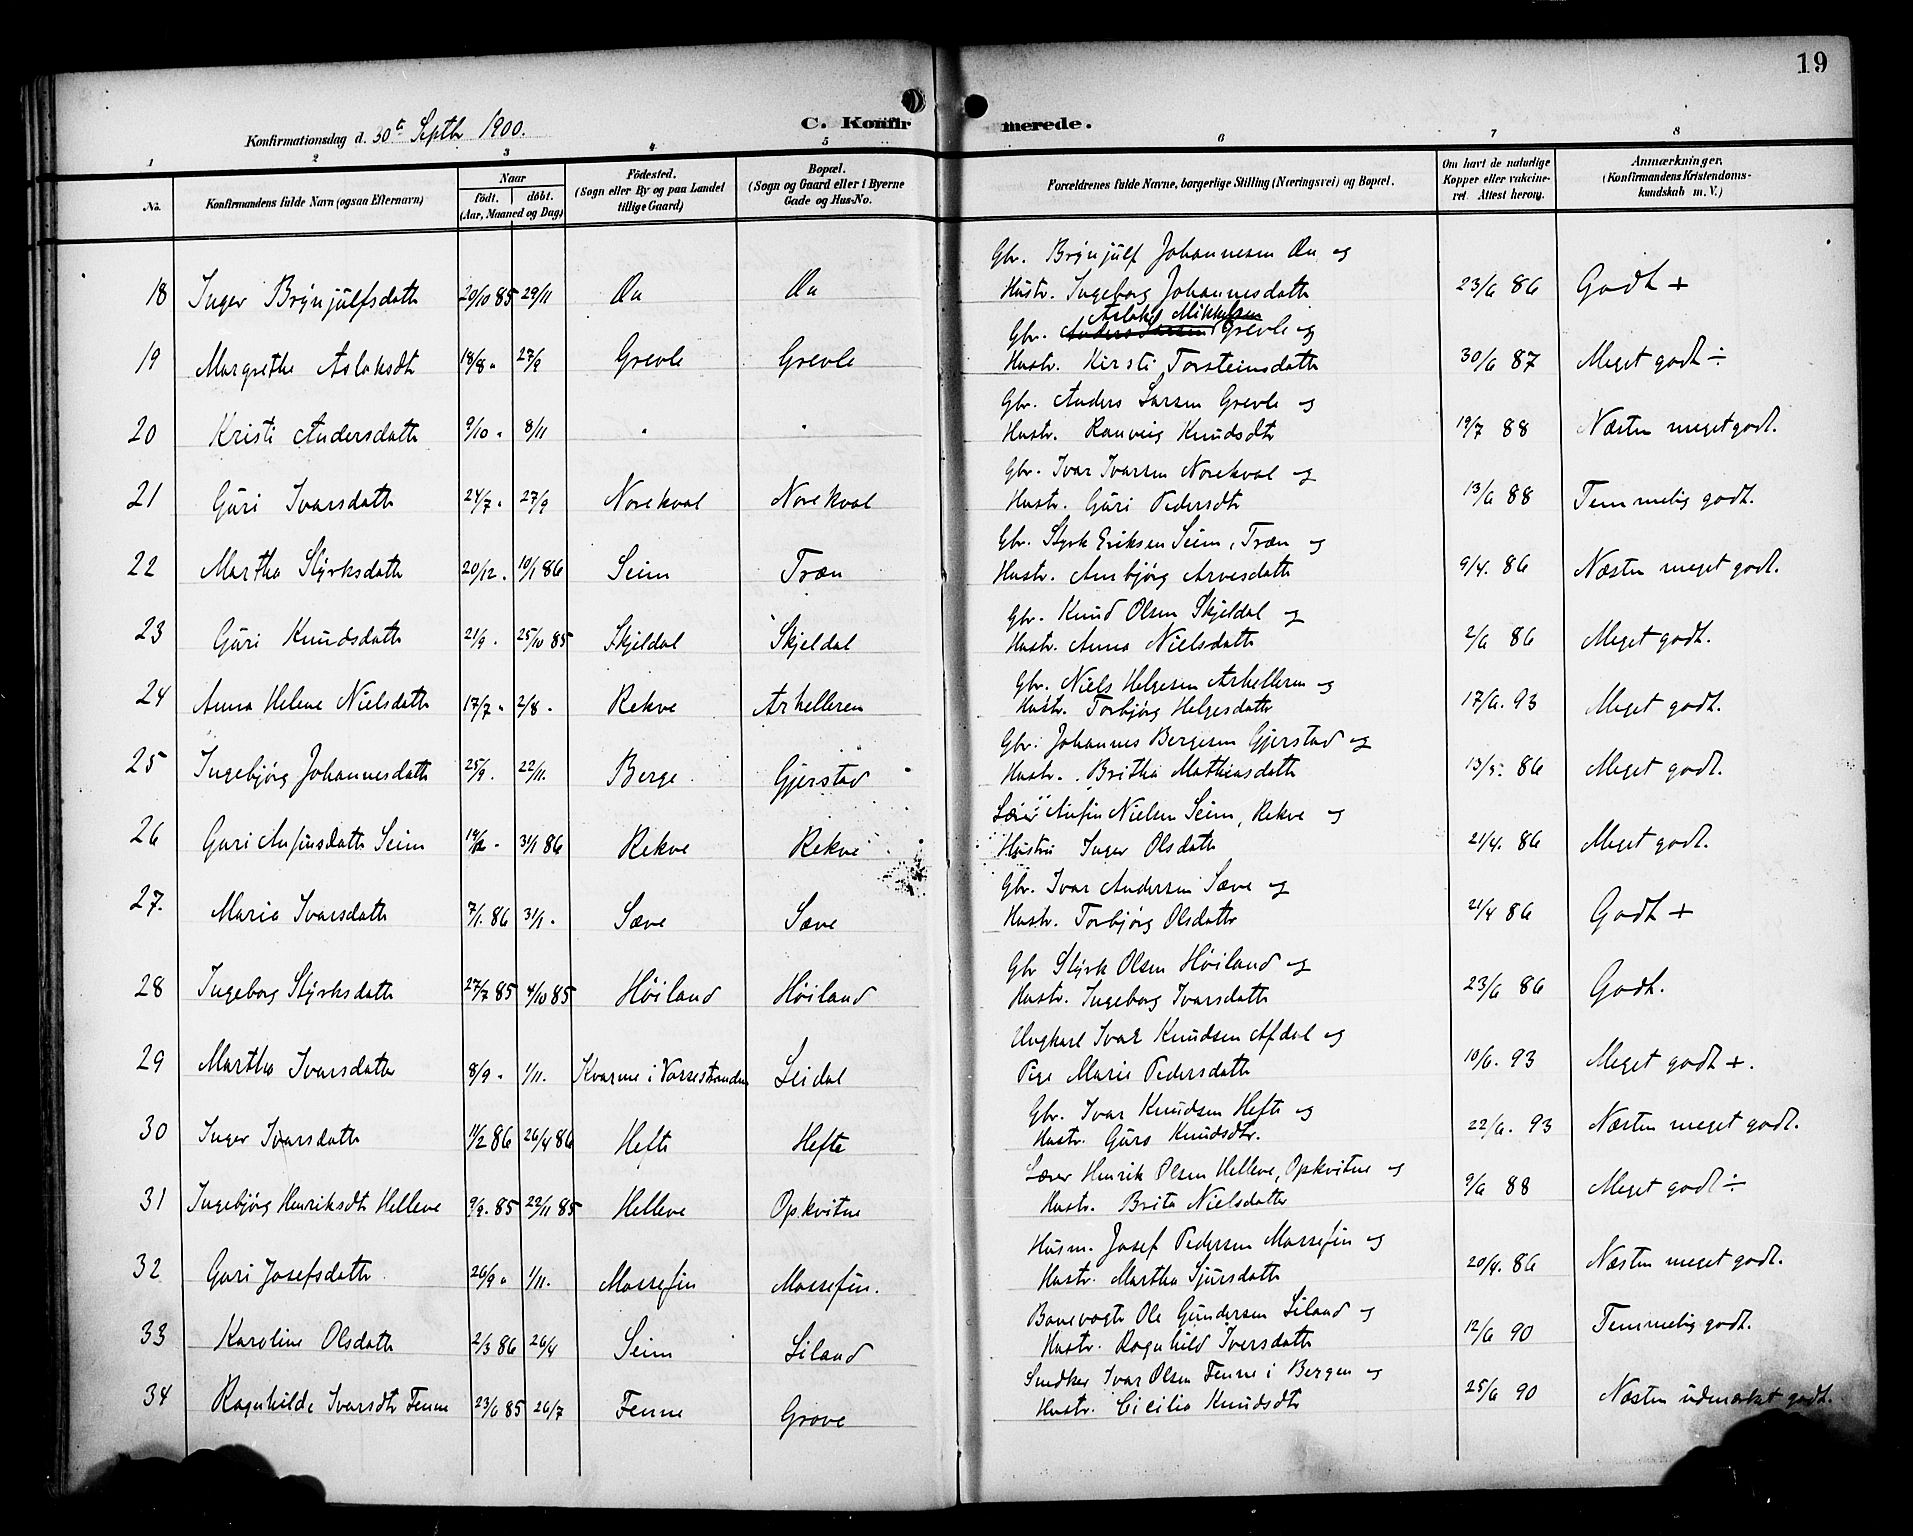 19
Konfirmationsdag d. 30te Septbr 1900. C. Konfirmerede.
1 2 3 4 5 6 7 8
No. Konfirmandens fulde Navn (ogsaa Efternavn) Naar født. døbt. (Aar, Maaned og Dag) Fødested. (Sogn eller By og paa Landet tillige Gaard) Bopæl. (Sogn og Gaard eller i Byerne Gade og Hus-No. Forældrenes fulde Navne, borgerlige Stilling (Næringsvei) og Bopæl. Om havt de naturlige Kopper eller vakcineret. Attest herom. Anmærkninger. (Konfirmandens Kristendomskundskab m. V.)
Gbr. Brynjulf Johannesen Øn og
18 Inger Brynjulfsdattr 20/10 85 29/11 Øn Øn Hustr. Ingeborg Johannesdattr 23/6 86 Godt +
Aslak Mikkelsen
Gbr. Anders Larsen Grevle og
19 Margrethe Aslaksdt 18/8 " 27/9 Grevle Grevle Hustr. Kirsti Torsteinsdattr 30/6 87 Meget godt ÷
Gbr. Anders Larsen Grevle og
20 Kristi Andersdattr 9/10 " 8/11 " " Hustr. Ranveig Knudsdtr 19/7 88 Næsten meget godt.
Gbr. Ivar Ivarsen Norekval og
21 Guri Ivarsdattr 24/7 " 27/9 Norekval Norekval Hustr. Guri Pedersdtr 13/6 88 Temmelig godt.
Gbr. Styrk Eriksen Seim, Træn og
22 Martha Styrksdattr 20/12. 10/1 86 Seim Træn Hustr. Annbjørg Arvesdattr 9/4. 86 Næsten meget godt.
Gbr. Knud Olsen Skjeldal og
23 Guri Knudsdattr 21/9 . 25/10 85 Skjeldal Skjeldal Hustr. Anna Nielsdattr 2/6 86 Meget godt.
Gbr. Niels Helgesen Arhelleren og
24 Anna Helene Nielsdattr 17/7 " 2/8 . Rekve Arhelleren Hustr. Torbjørg Helgesdattr 17/6. 93 Meget godt.
Gbr. Johannes Bergesen Gjerstad og
25 Ingebjørg Johannesdattr 25/9 . 22/11. Berge Gjerstad Hustr. Britha Mathiasdattr 13/5. 86 Meget godt.
Lærer Anfin Nielsen Seim, Rekve og
26 Guri Anfinsdattr Seim 19/12 . 31/1 86 Rekve Rekve Hustru Inger Olsdattr 21/4. 86 Meget godt.
Gbr. Ivar Andersen Sæve og
27. Maria Ivarsdattr 7/1. 86 31/1. Sæve Sæve Hustr. Torbjørg Olsdattr 21/4 86 Godt +
Gbr Styrk Olsen Høiland og
28 Ingeborg Styrksdattr 27/7 85 4/10 85 Høiland Høiland Hustr. Ingeborg Ivarsdattr 23/6 86 Godt.
Ungkarl Ivar Knudsen Afdal og
29 Martha Ivarsdatter 8/9 . 1/11. Kvarme i Vossestranden Leidal Pige Marie Pedersdattr 10/6. 93 Meget godt +.
Gbr. Ivar Knudsen Hefte og
30 Inger Ivarsdattr 11/2 86 26/4 86 Hefte Hefte Hustr. Guro Knudsdtr. 22/6. 93 Næsten meget godt.
Lærer Henrik Olsen Helleve, Opkvitne og
31 Ingebjørg Henriksdt Helleve 9/9. 85 22/11 85 Helleve Opkvitne Hustr. Brita Nielsdatter 9/6 88 Meget godt ÷
Husm. Josef Pedersen Massefin og
32 Guri Josefsdattr 26/9 " 1/11. Massefin Massefin. Hustr. Martha Sjursdattr 20/4. 86 Næsten meget godt.
Banevogtr Ole Gundersen Liland og
33 Karoline Olsdattr 2/3 86 26/4 Seim Liland Hustr. Ragnhild Iversdattr 12/6 90 Temmelig godt.
Snedker Ivar Olsen Fenne i Bergen og
34 Ragnhilde Ivarsdtr Fenne 23/6 85 26/7 Fenne Grove Hustr. Cicilia Knudsdtr 25/6 90 Næsten udmærket godt.